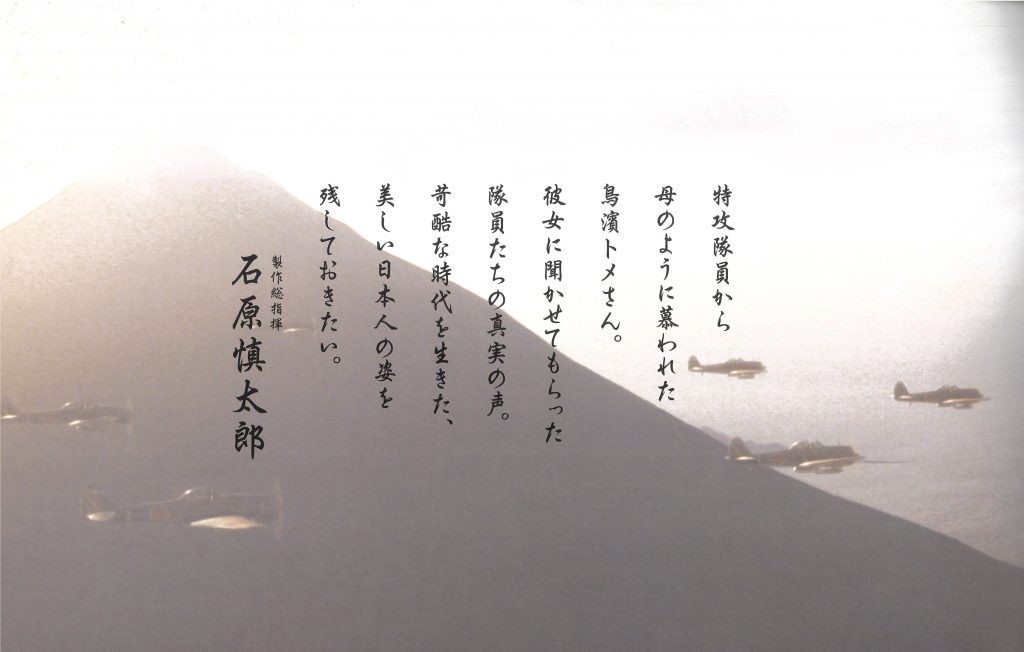 特攻隊員から
母のように慕われた
鳥濱トメさん。
彼女に聞かせてもらった
隊員たちの真実の声。
苛酷な時代を生きた、
美しい日本人の姿を
残しておきたい。
製作総指揮
石原慎太郎